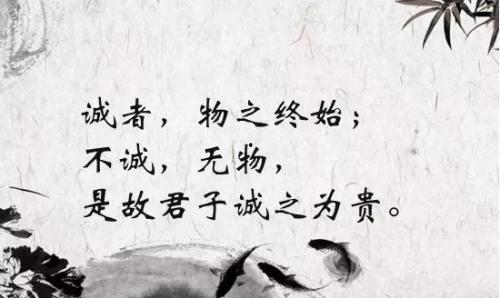 诚者，物之终始；
不诚，无物，
是故君子诚之为贵。